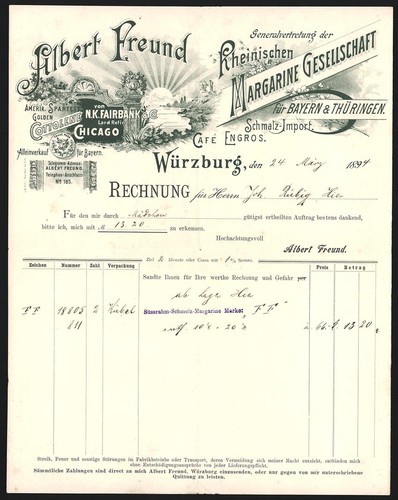 Albert Freund
Generalvertretung der
Rheinischen
Margarine Gesellschaft
für Bayern & Thüringen.
Schmalz-Import.
Café
Engros.
Amerik. Speisefett
Golden
Cottolene
von
N.K. Fairbank & Co
Lard Refin.
Chicago
Alleinverkauf für Bayern.
Telegramm-Adresse:
Albert Freund.
Telephon-Anschluss
No 185.
Würzburg, den 24 März 1894
Rechnung für Herrn Joh. Hier
Für den mir durch Mädchen gütigst ertheilten Auftrag bestens dankend,
bitte ich, mich mit M 13.20 zu erkennen.
Hochachtungsvoll
Albert Freund.
Ziel 2 Monate oder Cassa mit 1% Sconto.
Zeichen Nummer Zahl Verpackung Preis Betrag
Sandte Ihnen für Ihre werthe Rechnung und Gefahr per
ab Lager Hier
FF 18805 2 Kübel Süssrahm-Schmelz-Margarine Marke: "FF"
811 10 20 66. 13 20
Streik, Feuer und sonstige Störungen im Fabrikbetriebe oder Transport, deren Vermeidung sich meiner Macht entzieht, entbinden mich
ohne Entschädigungsansprüche von jeder Lieferungspflicht.
Sämmtliche Zahlungen sind direct zu mich Albert Freund, Würzburg einzusenden, oder nur gegen von mir unterschriebene
Quittung zu leisten.